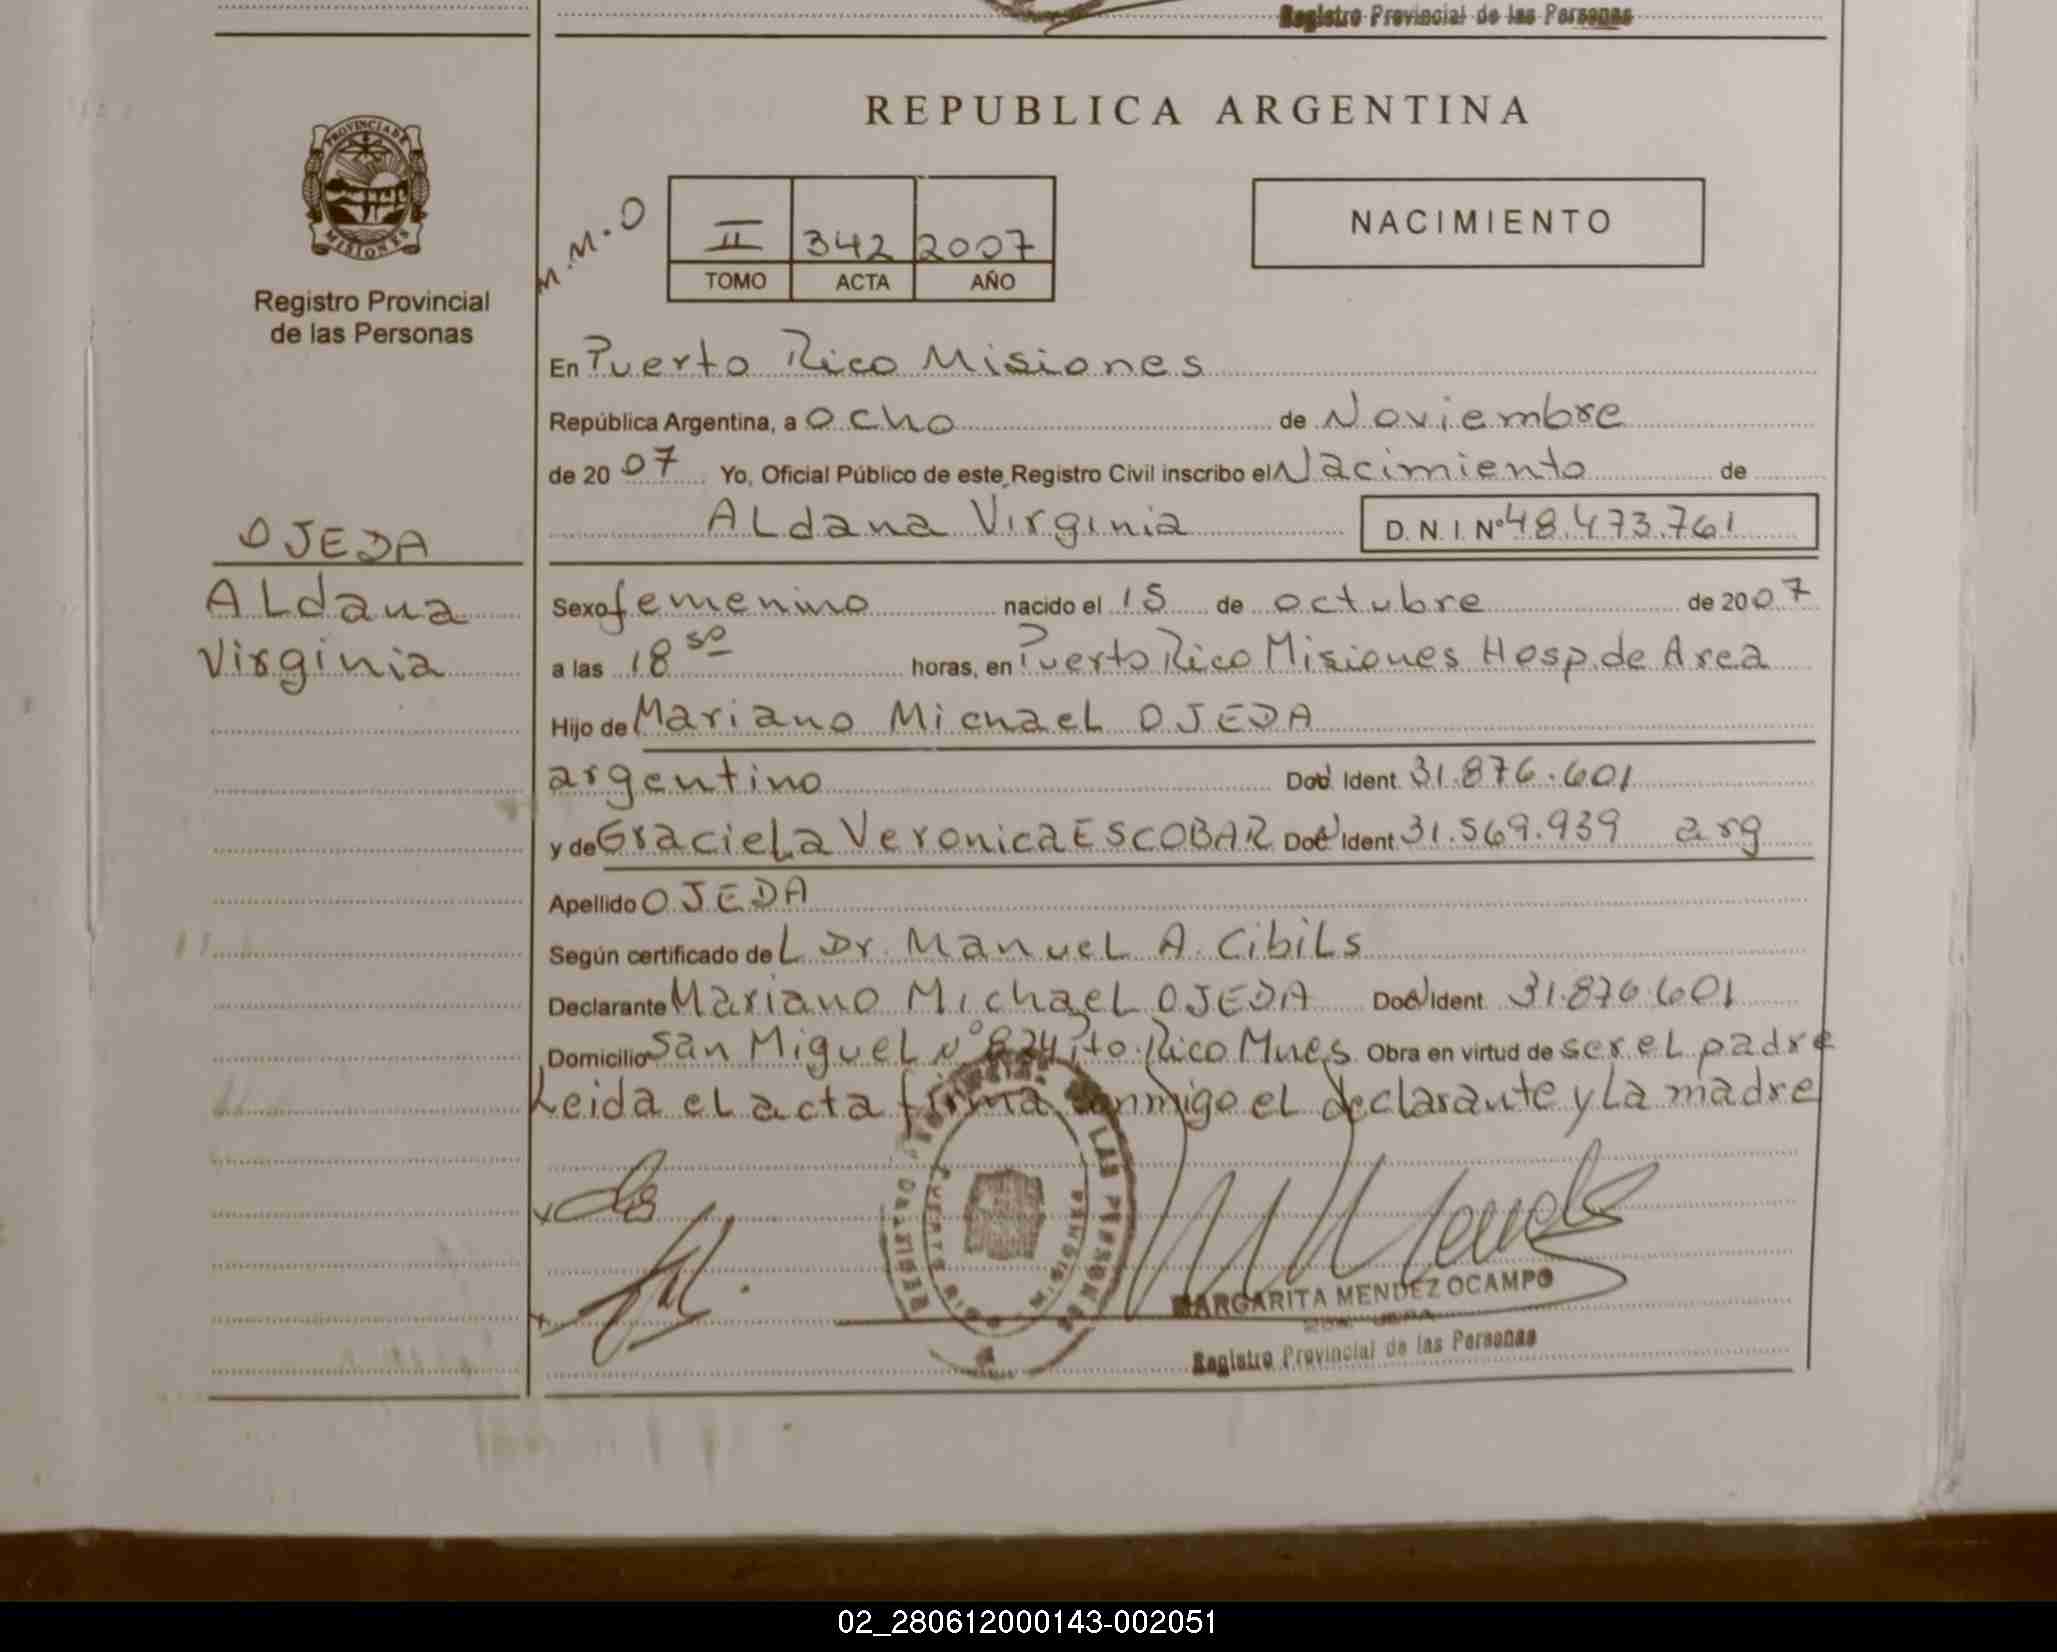 Registro Provincial de las Personas
REPUBLICA ARGENTINA
PROVINCIA DE
MISIONES
Registro Provincial
de las Personas
M.M.O
II 342 2007
TOMO ACTA AÑO
NACIMIENTO
En Puerto Rico Misiones
República Argentina, a ocho de Noviembre
de 2007 Yo, Oficial Público de este Registro Civil inscribo el Nacimiento de
Aldana Virginia D.N.I. Nº 48.473.761
OJEDA
Aldana
Virginia
Sexo femenino nacido el 15 de octubre de 2007
a las 18 50 horas, en Puerto Rico Misiones Hosp. de Area
Hijo de Mariano Michael OJEDA
argentino Doc. Ident. 31.876.601
y de Graciela Veronica ESCOBAR Doc. Ident. 31.569.939 arg
Apellido OJEDA
Según certificado del Dr. Manuel A. Cibils
Declarante Mariano Michael OJEDA Doc. Ident. 31.876.601
Domicilio San Miguel Nº 824 Pto. Rico Mnes. Obra en virtud de ser el padre
Leida el acta firma conmigo el declarante y la madre
MARGARITA MENDEZ OCAMPO
Registro Provincial de las Personas
02_280612000143-002051